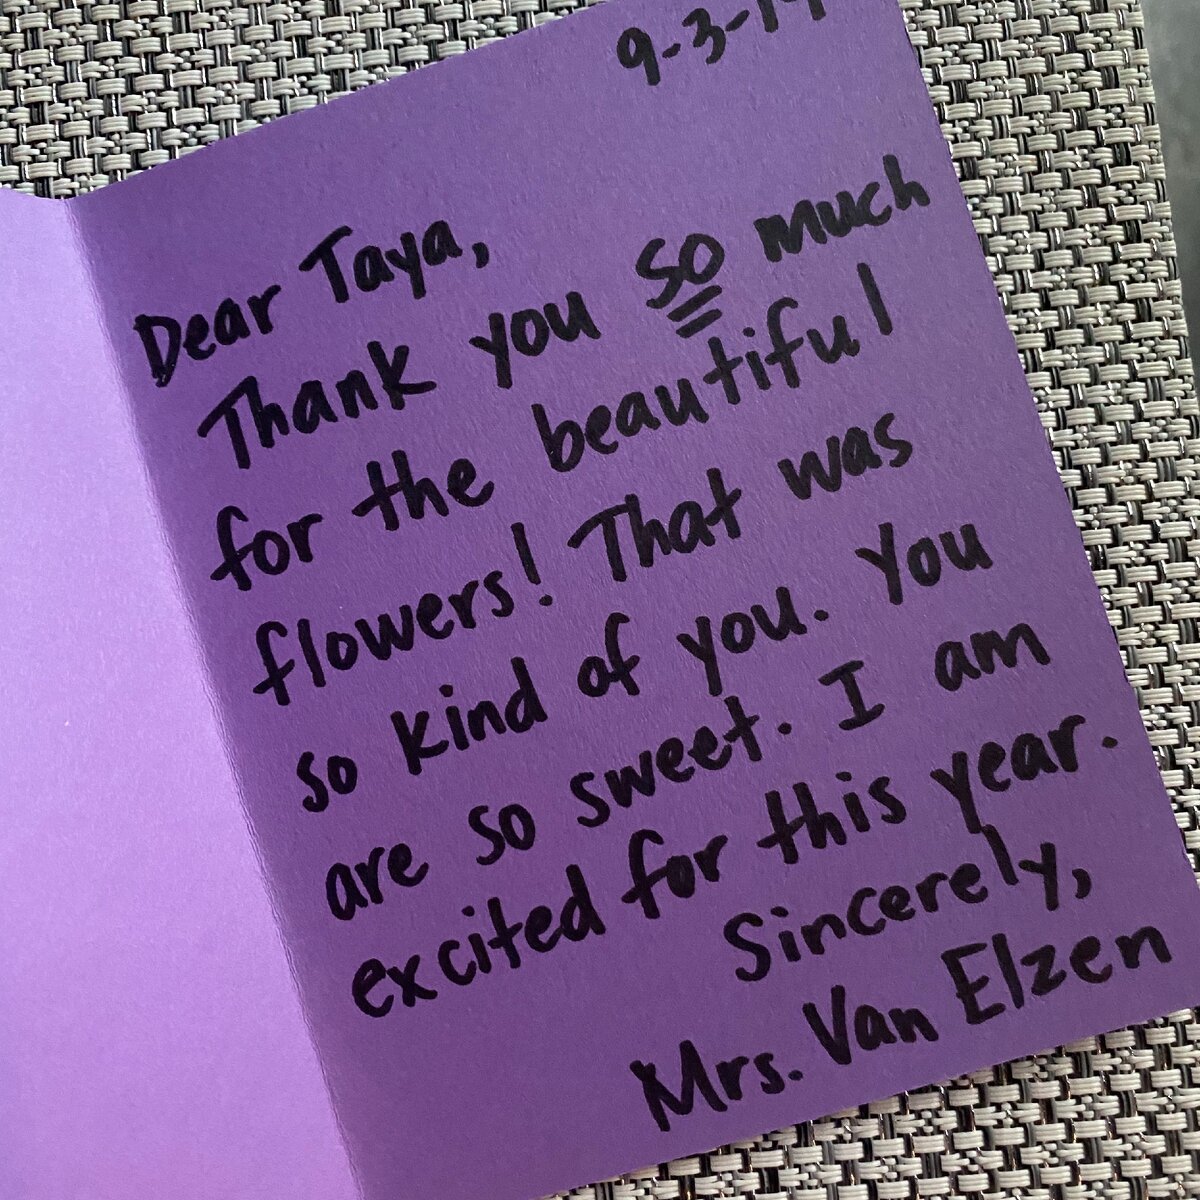 9-3-19
Dear Taya,
Thank you so much
for the beautiful
flowers! That was
so kind of you. You
are so sweet. I am
excited for this year.
Sincerely,
Mrs. Van Elzen